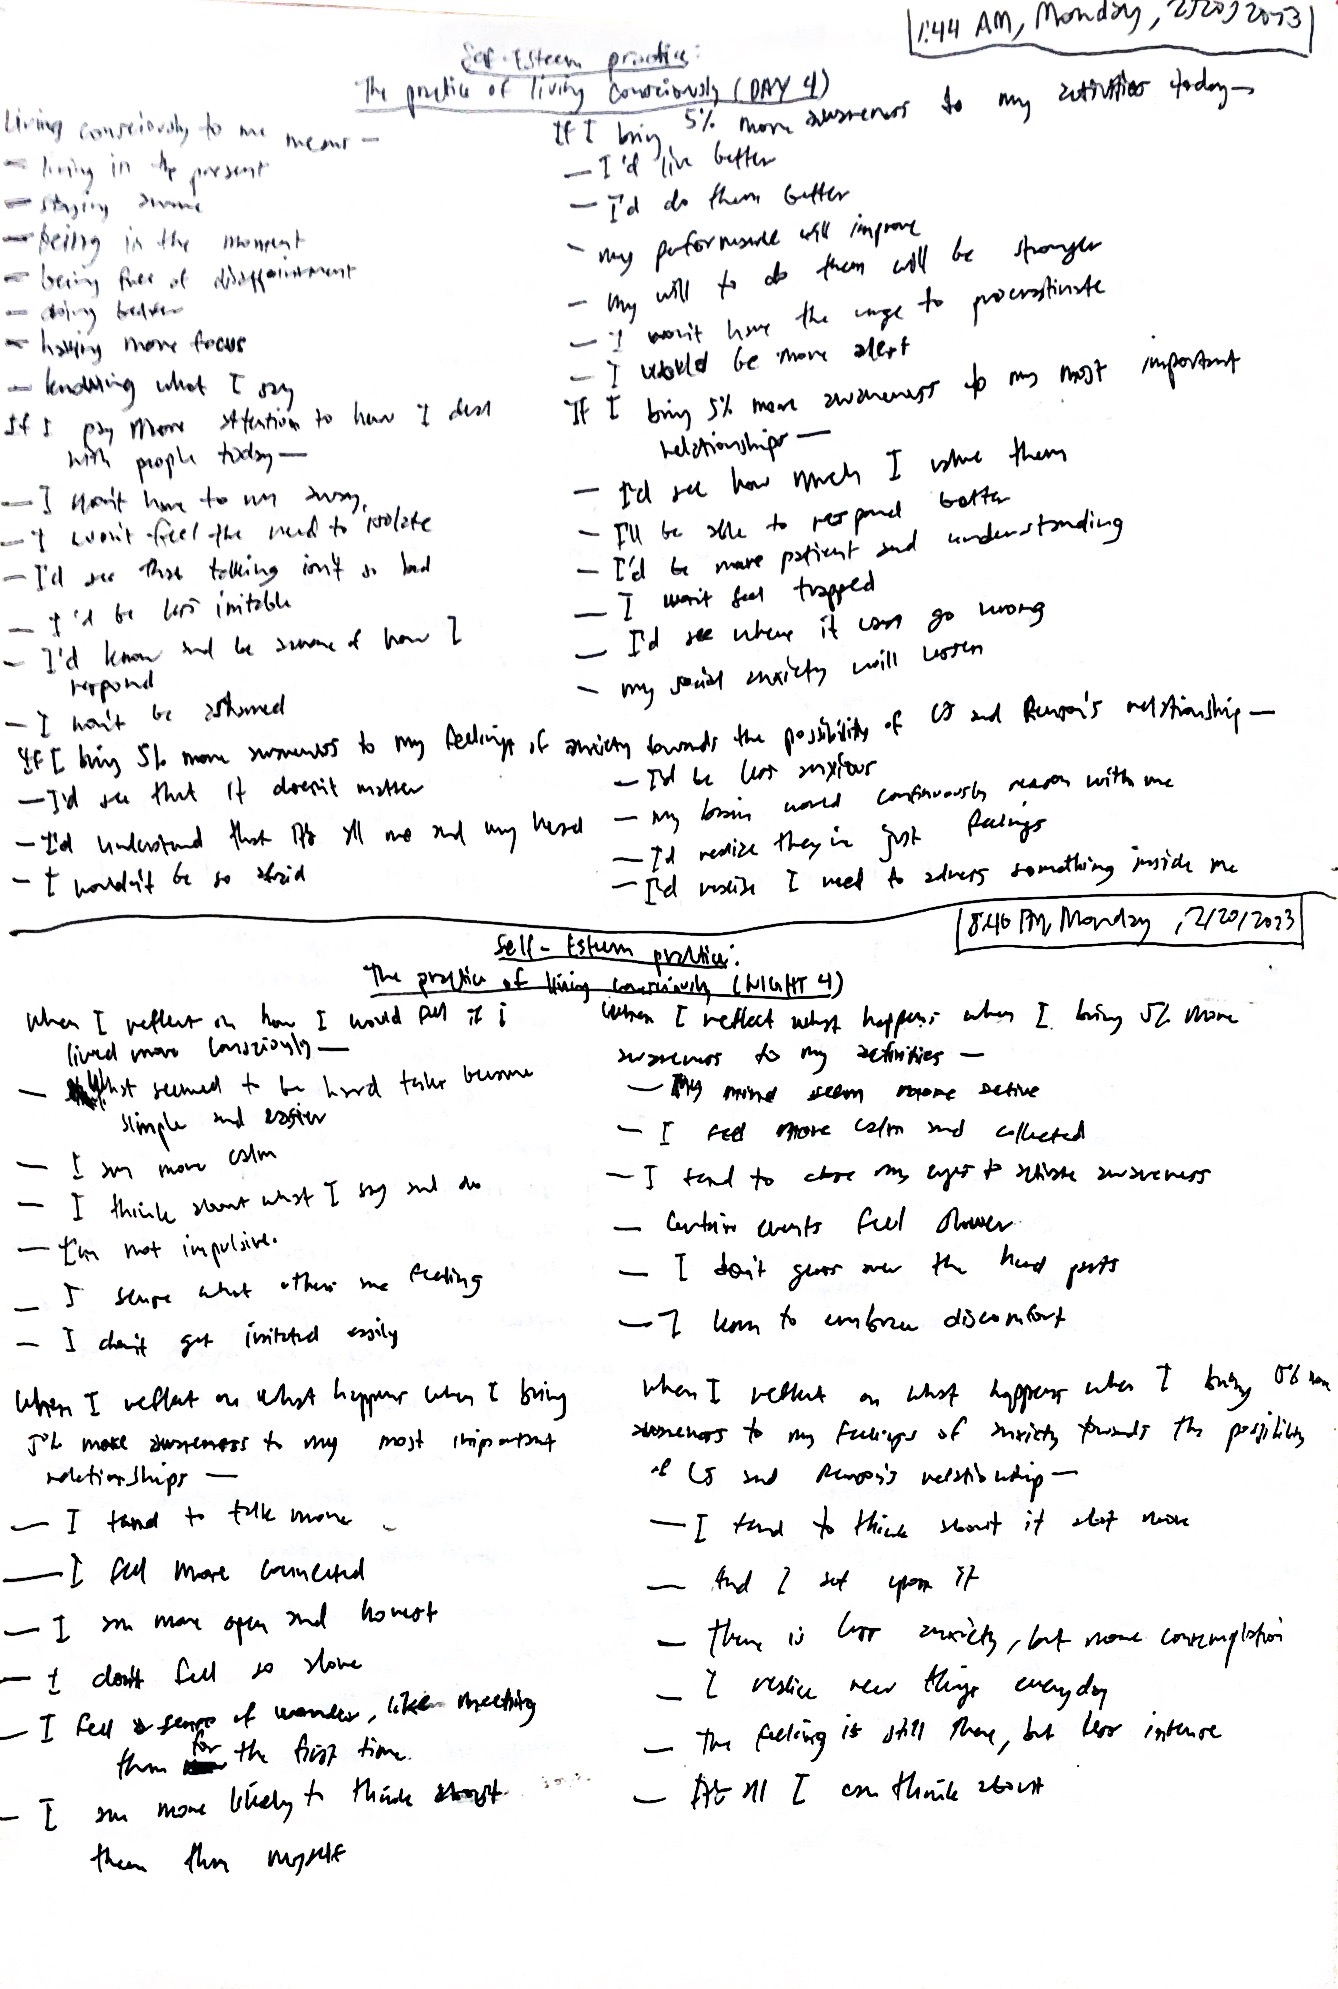 1:44 AM, Monday, 2/20/2023
Self-Esteem practice:
The practice of living consciously (DAY 4)
Living consciously to me means —
- living in the present
- staying aware
- being in the moment
- being free of disappointment
- doing better
- having more focus
- knowing what I say
If I pay more attention to how I deal
with people today —
- I won't have to run away
- I won't feel the need to isolate
- I'd see that talking isn't so bad
- I'd be less irritable
- I'd know and be aware of how I
respond
- I won't be ashamed
If I bring 5% more awareness to my activities today —
- I'd live better
- I'd do them better
- my performance will improve
- my will to do them will be stronger
- I won't have the urge to procrastinate
- I would be more alert
If I bring 5% more awareness to my most important
relationships —
- I'd see how much I value them
- I'll be able to respond better
- I'd be more patient and understanding
- I won't feel trapped
- I'd see where it can go wrong
- my social anxiety will lessen
If I bring 5% more awareness to my feelings of anxiety towards the possibility of CJ and relationship —
- I'd see that it doesn't matter
- I'd understand that it's all me and my head
- I wouldn't be so afraid
- I'd be less anxious
- my brain would continuously reason with me
- I'd realize they're just feelings
- I'd realize I need to address something inside me
8:40 PM, Monday, 2/20/2023
Self-Esteem practice:
The practice of living consciously (NIGHT 4)
When I reflect on how I would feel if i
lived more consciously —
- What seemed to be hard tasks become
simple and easier
- I am more calm
- I think about what I say and do
- I'm not impulsive.
- I sense what others are feeling
- I don't get irritated easily
When I reflect what happens when I bring 5% more
awareness to my activities —
- My mind seem more active
- I feel more calm and collected
- I tend to close my eyes to activate awareness
- Certain events feel slower
- I don't gloss over the hard parts
- I learn to embrace discomfort
When I reflect on what happens when I bring
5% more awareness to my most important
relationships —
- I tend to talk more
- I feel more connected
- I am more open and honest
- I don't feel so alone
- I feel a sense of wonder, like meeting
them for the first time.
- I am more likely to think about
them than myself
When I reflect on what happens when I bring 5% more
awareness to my feelings of anxiety towards the possibility
of CJ and relationship —
- I tend to think about it alot more
- And I act upon it
- there is less anxiety, but more contemplation
- I realize new things everyday
- the feeling is still there, but less intense
- It's all I can think about